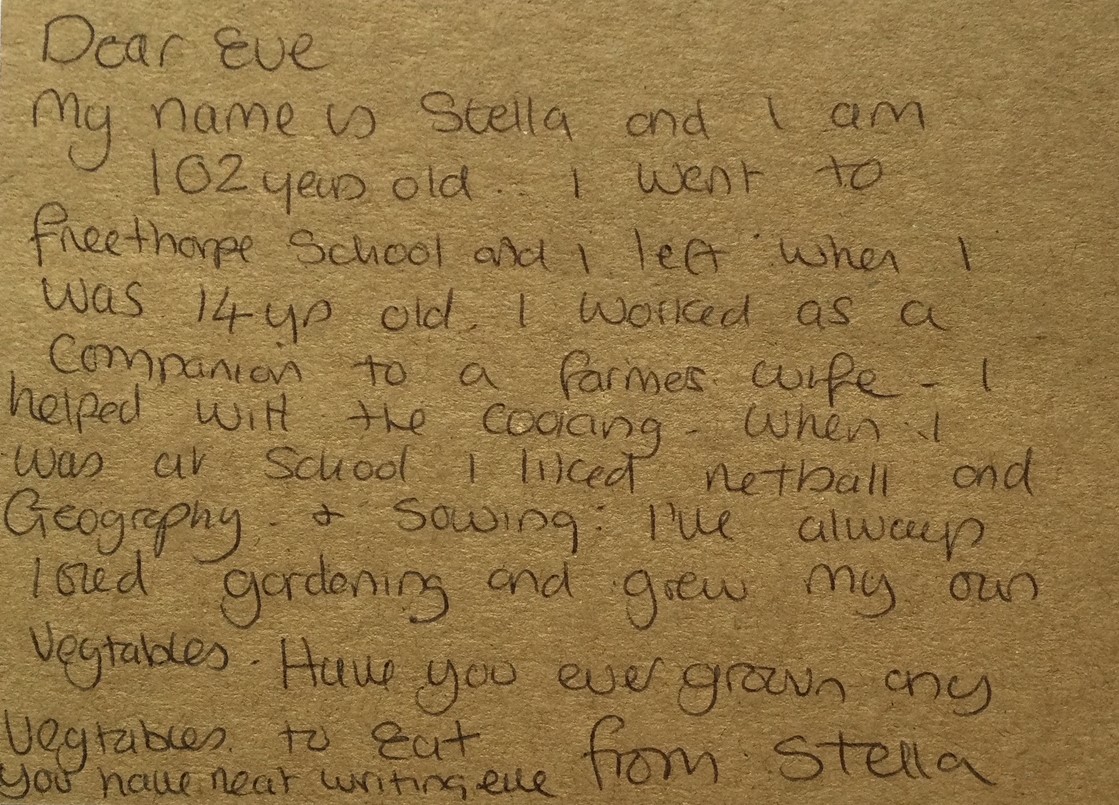 Dear Eve
My name is Stella and I am
102 years old.. I went to
freethorpe School and i left when I
was 14 yrs old. I worked as a
Companion to a farmers wife - I
helped with the cooking - when I
was at School I liked netball and
Geography. & Sowing: I've always
loved gardening and grew my own
Vegtables. Have you ever grown any
Vegtables. to Eat from Stella
You have neat writing eve